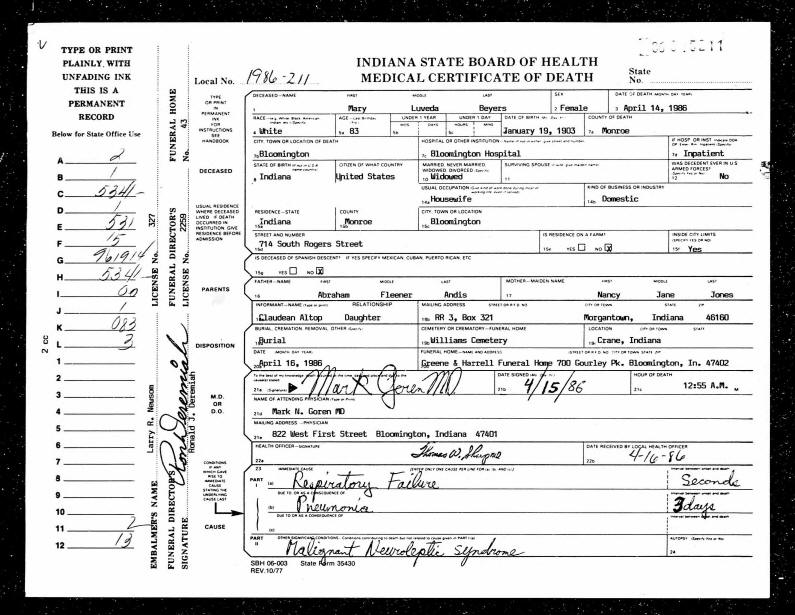 INDIANA STATE BOARD OF HEALTH
MEDICAL CERTIFICATE OF DEATH
Local No. 1986-211
State No.
TYPE OR PRINT
PLAINLY, WITH
UNFADING INK
THIS IS A
PERMANENT
RECORD
Below for State Office Use
A 2
B 1
C 5341
D 1
E 531
F 15
G 961914
H 5341
I 00
J 1
K 083
L 3
1
2
3
4
5
6
7
8
9
10
11 2
12 13
2 CC
FUNERAL HOME No. 43
LICENSE No. 327
FUNERAL DIRECTOR'S LICENSE No. 2259
EMBALMER'S NAME Larry R. Newsom
FUNERAL DIRECTOR'S SIGNATURE Ron Deremiah
Ronald J. Deremiah
TYPE
OR PRINT
IN
PERMANENT
INK
FOR
INSTRUCTIONS
SEE
HANDBOOK
DECEASED
USUAL RESIDENCE
WHERE DECEASED
LIVED IF DEATH
OCCURRED IN
INSTITUTION GIVE
RESIDENCE BEFORE
ADMISSION
PARENTS
DISPOSITION
M.D.
OR
D.O.
CONDITIONS
IF ANY
WHICH GAVE
RISE TO
IMMEDIATE
CAUSE
STATING THE
UNDERLYING
CAUSE LAST
CAUSE
DECEASED—NAME FIRST MIDDLE LAST SEX DATE OF DEATH (MONTH, DAY, YEAR)
1 Mary Luveda Beyers 2 Female 3 April 14, 1986
RACE AGE UNDER 1 YEAR UNDER 1 DAY DATE OF BIRTH COUNTY OF DEATH
MOS DAYS HOURS MINS
4 White 5a 83 5b 5c January 19, 1903 7a Monroe
CITY, TOWN OR LOCATION OF DEATH HOSPITAL OR OTHER INSTITUTION IF HOSP OR INST
Bloomington 7c Bloomington Hospital Inpatient
STATE OF BIRTH CITIZEN OF WHAT COUNTRY MARRIED, NEVER MARRIED, WIDOWED, DIVORCED SURVIVING SPOUSE WAS DECEDENT EVER IN U.S. ARMED FORCES?
8 Indiana United States 10 Widowed 11 12 No
USUAL OCCUPATION KIND OF BUSINESS OR INDUSTRY
14a Housewife 14b Domestic
RESIDENCE—STATE COUNTY CITY, TOWN OR LOCATION
15a Indiana 15b Monroe 15c Bloomington
STREET AND NUMBER IS RESIDENCE ON A FARM? INSIDE CITY LIMITS (SPECIFY YES OR NO)
15d 714 South Rogers Street 15e YES NO X 15f Yes
IS DECEASED OF SPANISH DESCENT? IF YES SPECIFY MEXICAN, CUBAN, PUERTO RICAN, ETC
15g YES NO X
FATHER—NAME FIRST MIDDLE LAST MOTHER—MAIDEN NAME FIRST MIDDLE LAST
16 Abraham Fleener Andis 17 Nancy Jane Jones
INFORMANT—NAME (Type or print) RELATIONSHIP MAILING ADDRESS STREET OR R.F.D. NO. CITY OR TOWN STATE ZIP
Claudean Altop Daughter 18b RR 3, Box 321 Morgantown, Indiana 46160
BURIAL, CREMATION, REMOVAL, OTHER (Specify) CEMETERY OR CREMATORY—FUNERAL HOME LOCATION CITY OR TOWN STATE
Burial 19b Williams Cemetery 19c Crane, Indiana
DATE (MONTH, DAY, YEAR) FUNERAL HOME—NAME AND ADDRESS (STREET OR R.F.D. NO. CITY OR TOWN STATE ZIP)
April 16, 1986 Greene & Harrell Funeral Home 700 Gourley Pk. Bloomington, In. 47402
DATE SIGNED HOUR OF DEATH
21a (Signature) Mark Goren MD 21b 4/15/86 21c 12:55 A.M. M
NAME OF ATTENDING PHYSICIAN (Type or Print)
21d Mark N. Goren MD
MAILING ADDRESS—PHYSICIAN
21e 822 West First Street Bloomington, Indiana 47401
HEALTH OFFICER—SIGNATURE DATE RECEIVED BY LOCAL HEALTH OFFICER
22a 22b 4-16-86
23 IMMEDIATE CAUSE [ENTER ONLY ONE CAUSE PER LINE FOR (a), (b), AND (c).] Interval between onset and death
PART I (a) Respiratory Failure Seconds
DUE TO, OR AS A CONSEQUENCE OF Interval between onset and death
(b) Pneumonia 3 days
DUE TO, OR AS A CONSEQUENCE OF Interval between onset and death
(c)
PART II OTHER SIGNIFICANT CONDITIONS—Conditions contributing to death but not related to cause given in PART I (a) AUTOPSY (Specify Yes or No)
Malignant Neuroleptic Syndrome 24
SBH 06-003 State Form 35430
REV.10/77